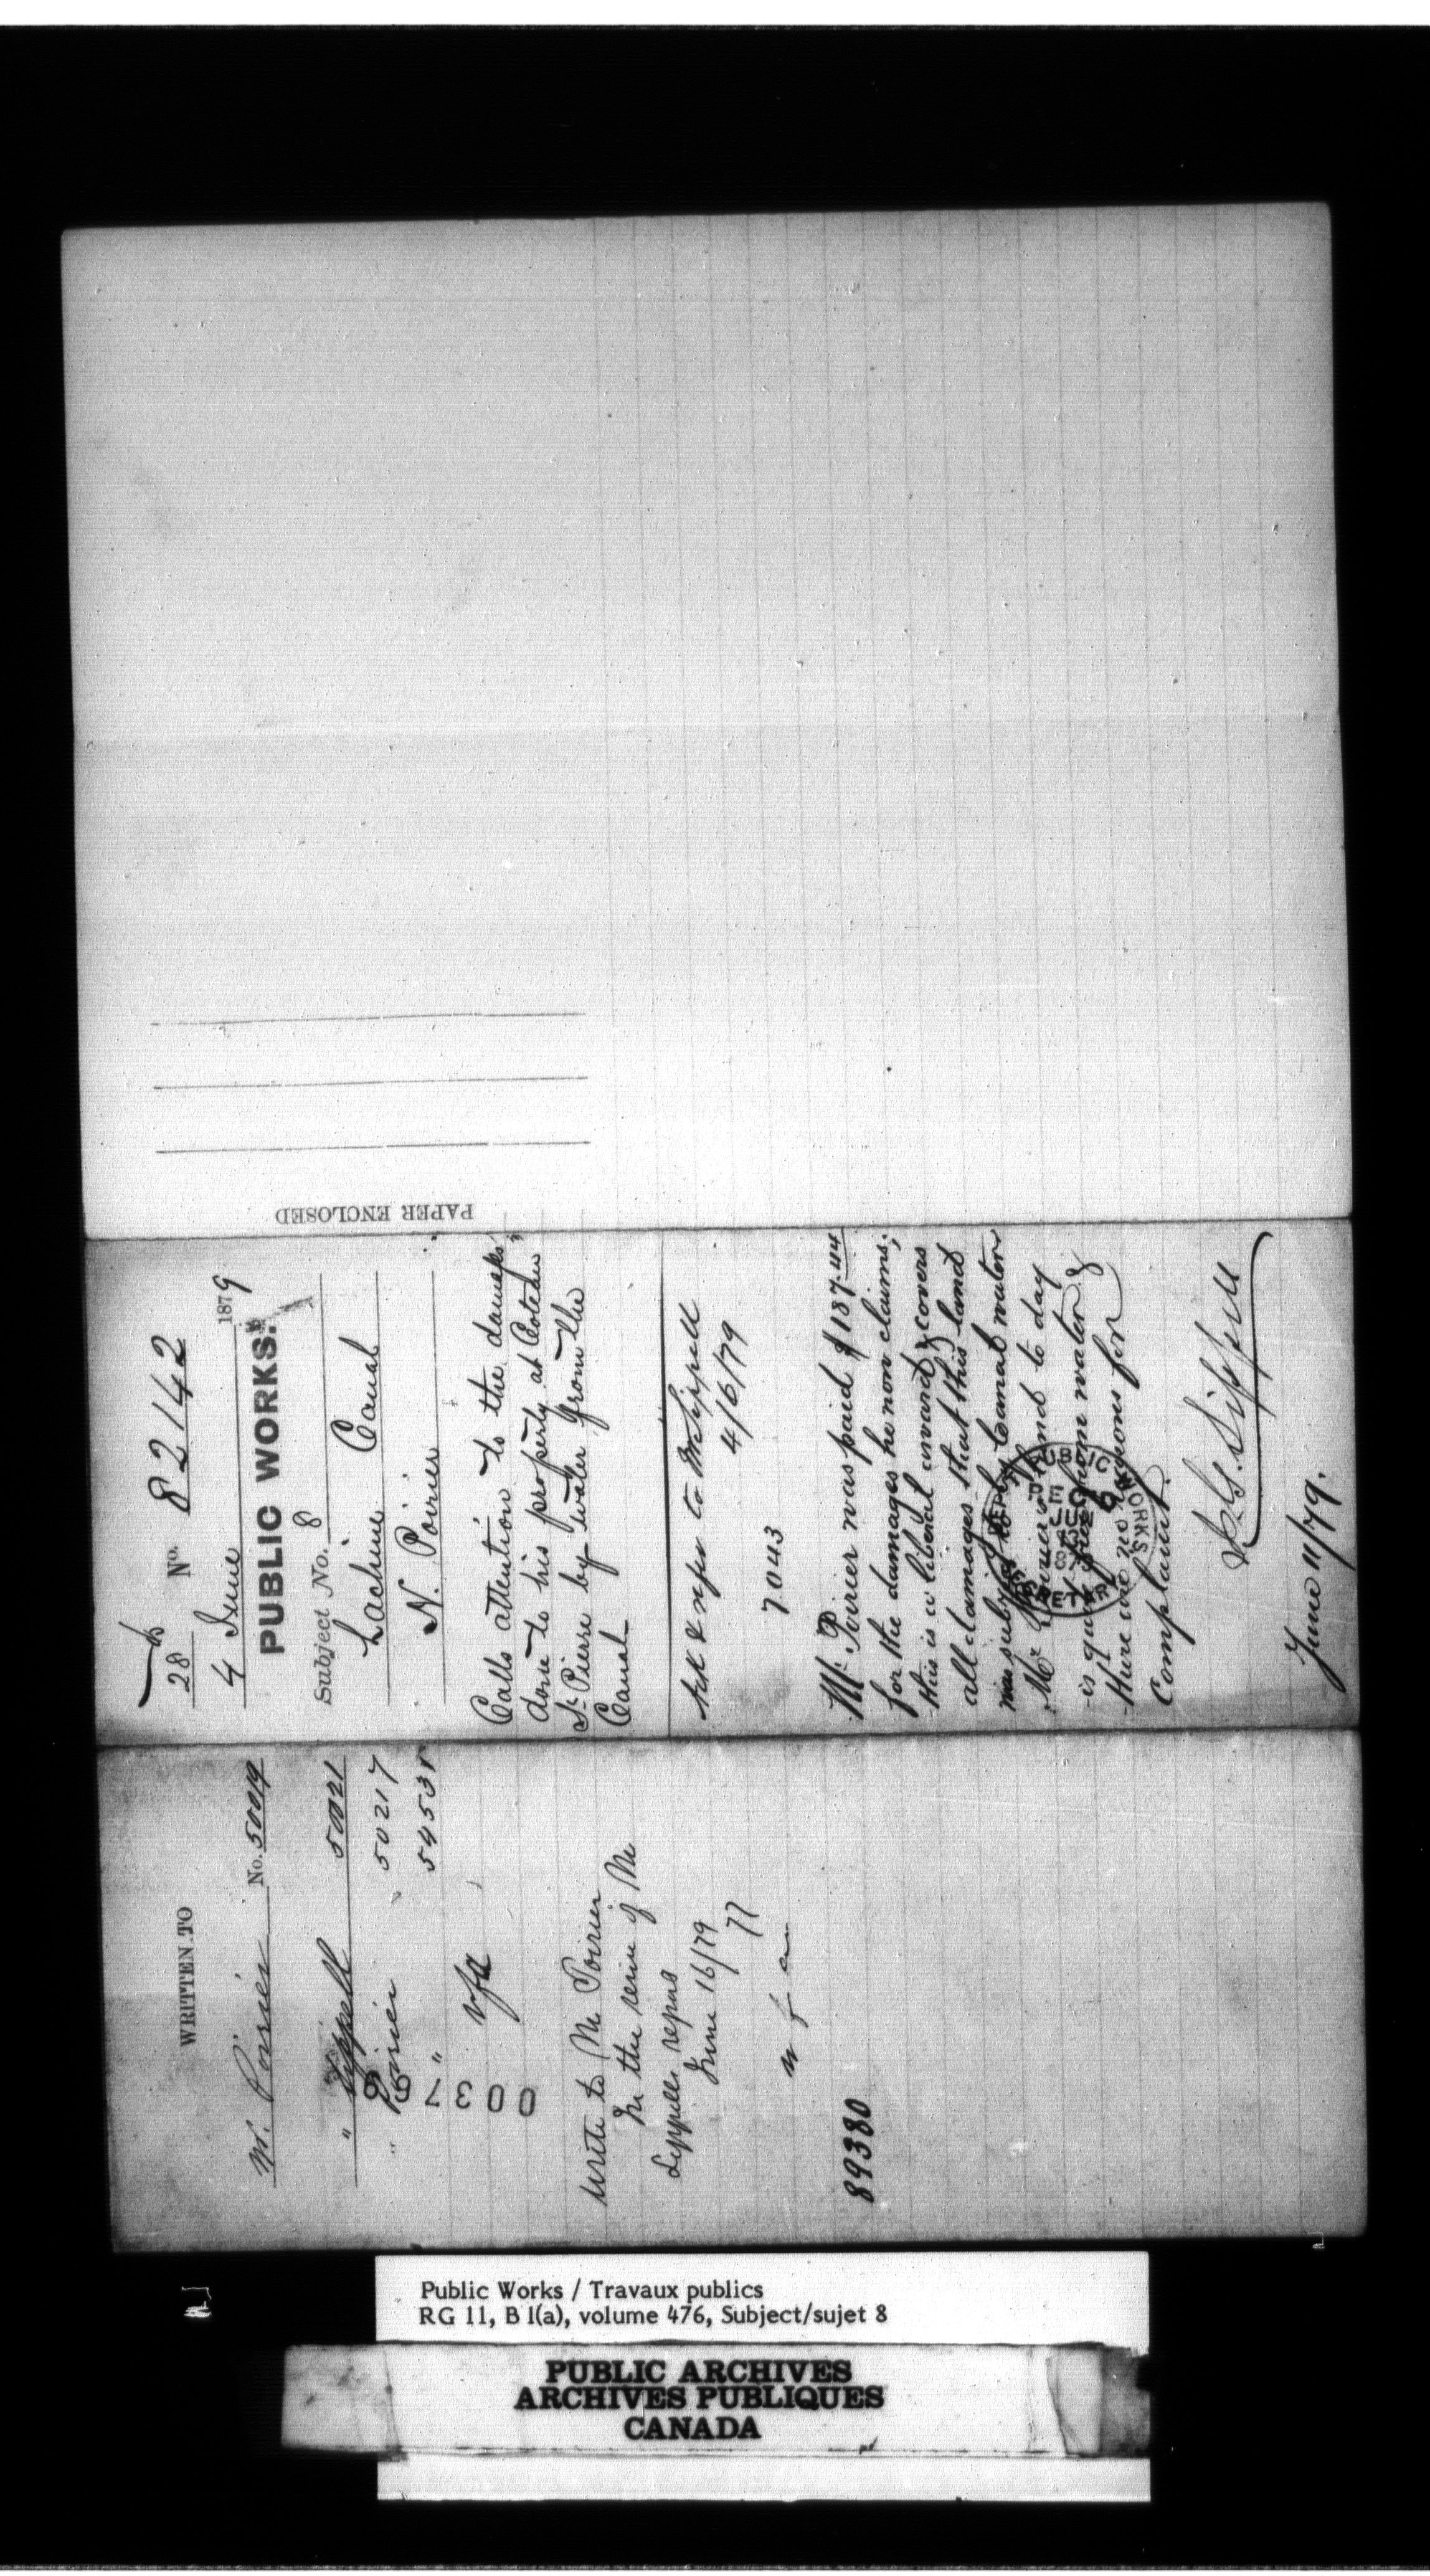 PAPER ENCLOSED
28 No. 82142
4 June 1879
PUBLIC WORKS.
Subject No. 8
Lachine Canal
N. Poirier
Calls attention to the damages
done to his property at Coteau
St Pierre by water from the
Canal
Ack & refer to Mr Sippell
4/6/79
7043
Mr. Poirier was paid $187.44
for the damages he now claims;
this is a liberal award & covers
all damages that this land
was subject to by Canal water
Mr Poirier's land to day
is quite free from water &
there are no reasons for
Complaint.
J.G. Sippell
June 11/79.
PUBLIC WORKS
WRITTEN TO
N. Poirier No. 5009
" Sippell 50021
" Poirier 50217
" 54538
003766
Write to Mr Poirier
In the sense of Mr
Sippells report
June 16/79
77
89380
Public Works / Travaux publics
RG 11, B 1(a), volume 476, Subject/sujet 8
PUBLIC ARCHIVES
ARCHIVES PUBLIQUES
CANADA